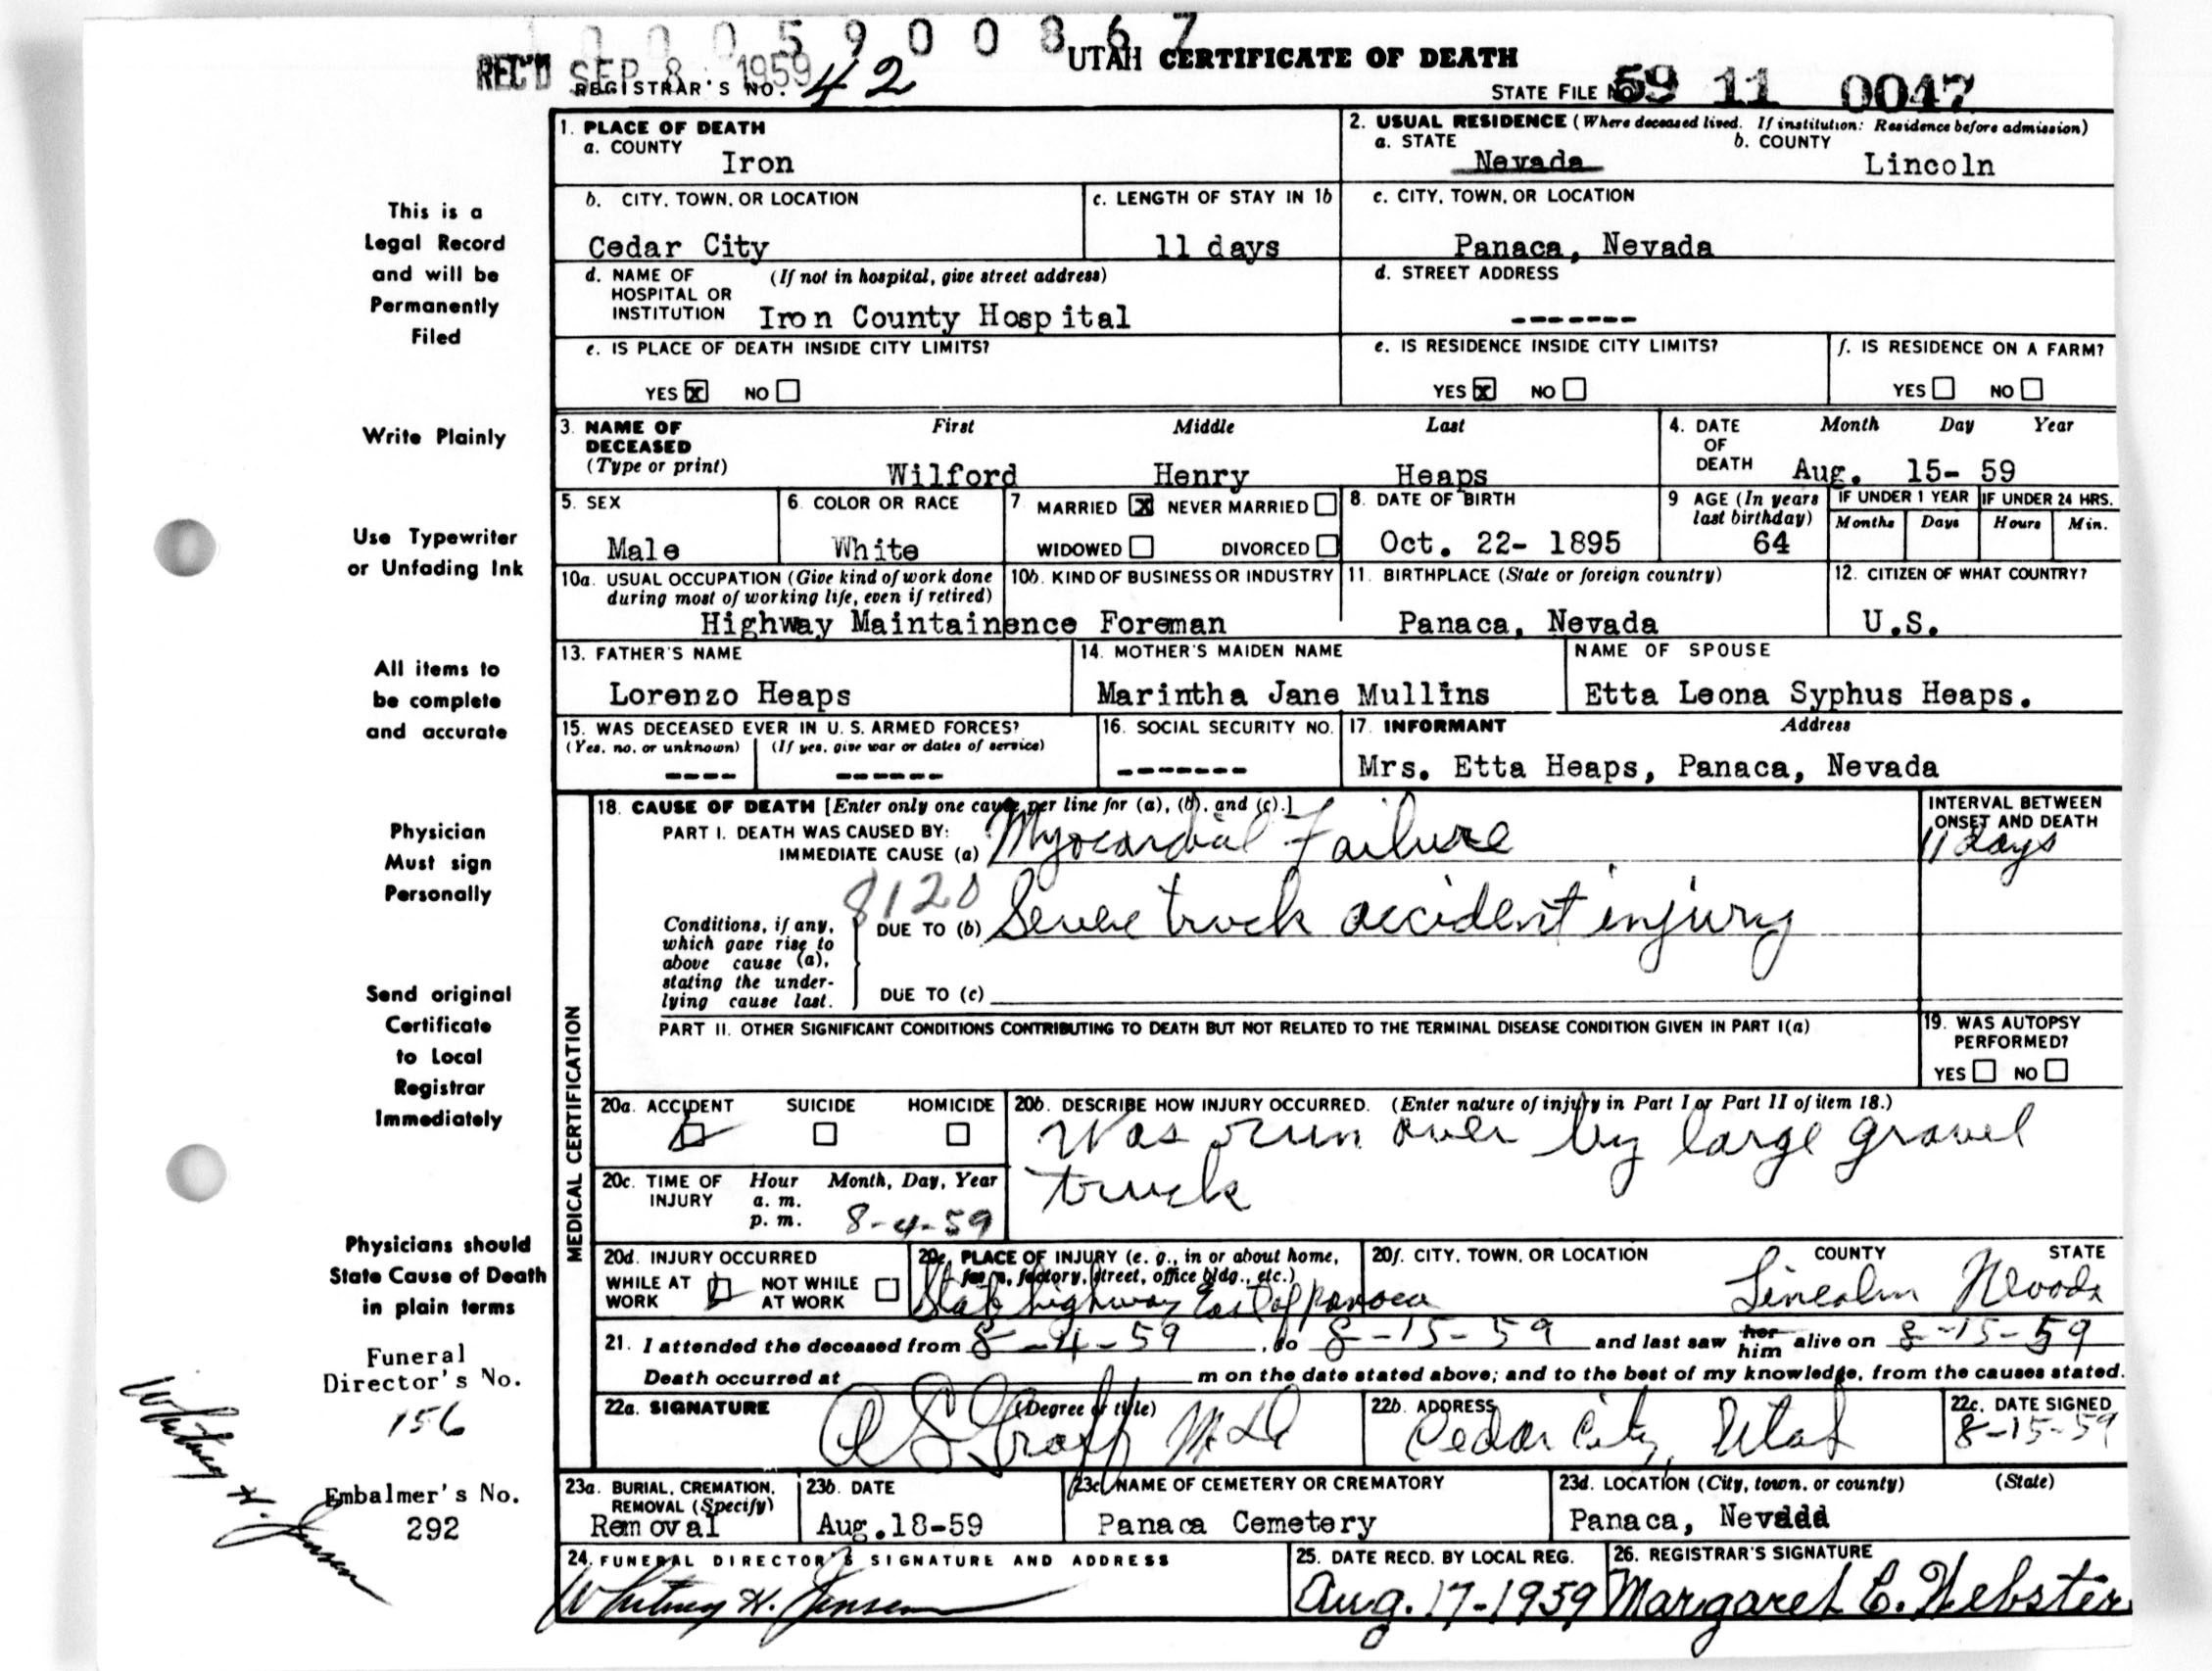 1 0 0 5 9 0 0 8 6 7
REC'D SEP 8 1959
UTAH CERTIFICATE OF DEATH
REGISTRAR'S NO. 42
STATE FILE NO. 59 11 0047
1. PLACE OF DEATH
a. COUNTY Iron
2. USUAL RESIDENCE (Where deceased lived. If institution: Residence before admission)
a. STATE Nevada b. COUNTY Lincoln
b. CITY, TOWN, OR LOCATION Cedar City
c. LENGTH OF STAY IN 1b 11 days
c. CITY, TOWN, OR LOCATION Panaca, Nevada
d. NAME OF HOSPITAL OR INSTITUTION (If not in hospital, give street address) Iron County Hospital
d. STREET ADDRESS -------
e. IS PLACE OF DEATH INSIDE CITY LIMITS?
YES x NO
e. IS RESIDENCE INSIDE CITY LIMITS?
YES x NO
f. IS RESIDENCE ON A FARM?
YES NO
3. NAME OF DECEASED (Type or print)
First Middle Last
Wilford Henry Heaps
4. DATE OF DEATH
Month Day Year
Aug. 15- 59
5. SEX Male
6. COLOR OR RACE White
7 MARRIED x NEVER MARRIED
WIDOWED DIVORCED
8. DATE OF BIRTH Oct. 22- 1895
9 AGE (In years last birthday) 64
IF UNDER 1 YEAR Months Days
IF UNDER 24 HRS. Hours Min.
10a. USUAL OCCUPATION (Give kind of work done during most of working life, even if retired)
10b. KIND OF BUSINESS OR INDUSTRY
Highway Maintainence Foreman
11. BIRTHPLACE (State or foreign country) Panaca, Nevada
12. CITIZEN OF WHAT COUNTRY? U.S.
13. FATHER'S NAME Lorenzo Heaps
14. MOTHER'S MAIDEN NAME Marintha Jane Mullins
NAME OF SPOUSE Etta Leona Syphus Heaps.
15. WAS DECEASED EVER IN U.S. ARMED FORCES?
(Yes, no, or unknown) ---- (If yes, give war or dates of service) ------
16. SOCIAL SECURITY NO. -------
17. INFORMANT Address
Mrs. Etta Heaps, Panaca, Nevada
MEDICAL CERTIFICATION
18. CAUSE OF DEATH [Enter only one cause per line for (a), (b), and (c).]
PART I. DEATH WAS CAUSED BY:
IMMEDIATE CAUSE (a) Myocardial Failure
INTERVAL BETWEEN ONSET AND DEATH
11 days
8120
Conditions, if any, which gave rise to above cause (a), stating the underlying cause last.
DUE TO (b) Severe truck accident injury
DUE TO (c)
PART II. OTHER SIGNIFICANT CONDITIONS CONTRIBUTING TO DEATH BUT NOT RELATED TO THE TERMINAL DISEASE CONDITION GIVEN IN PART I(a)
19. WAS AUTOPSY PERFORMED?
YES NO
20a. ACCIDENT SUICIDE HOMICIDE
20b. DESCRIBE HOW INJURY OCCURRED. (Enter nature of injury in Part I or Part II of item 18.)
Was run over by large gravel
truck
20c. TIME OF INJURY Hour a. m. p. m. Month, Day, Year
8-4-59
20d. INJURY OCCURRED
WHILE AT WORK NOT WHILE AT WORK
20e. PLACE OF INJURY (e. g., in or about home, farm, factory, street, office bldg., etc.)
State highway East of panaca
20f. CITY, TOWN, OR LOCATION COUNTY STATE
Lincoln Nevada
21. I attended the deceased from 8-4-59, to 8-15-59 and last saw her him alive on 8-15-59
Death occurred at m on the date stated above; and to the best of my knowledge, from the causes stated.
22a. SIGNATURE (Degree or title) MD
22b. ADDRESS Cedar City, Utah
22c. DATE SIGNED 8-15-59
23a. BURIAL, CREMATION, REMOVAL (Specify) Removal
23b. DATE Aug.18-59
23c. NAME OF CEMETERY OR CREMATORY Panaca Cemetery
23d. LOCATION (City, town, or county) (State) Panaca, Nevada
24. FUNERAL DIRECTOR'S SIGNATURE AND ADDRESS
Whitney H. Jensen
25. DATE RECD. BY LOCAL REG. Aug. 17-1959
26. REGISTRAR'S SIGNATURE Margaret E. Webster
This is a
Legal Record
and will be
Permanently
Filed
Write Plainly
Use Typewriter
or Unfading Ink
All items to
be complete
and accurate
Physician
Must sign
Personally
Send original
Certificate
to Local
Registrar
Immediately
Physicians should
State Cause of Death
in plain terms
Funeral
Director's No.
156
Embalmer's No.
292
Whitney H. Jensen